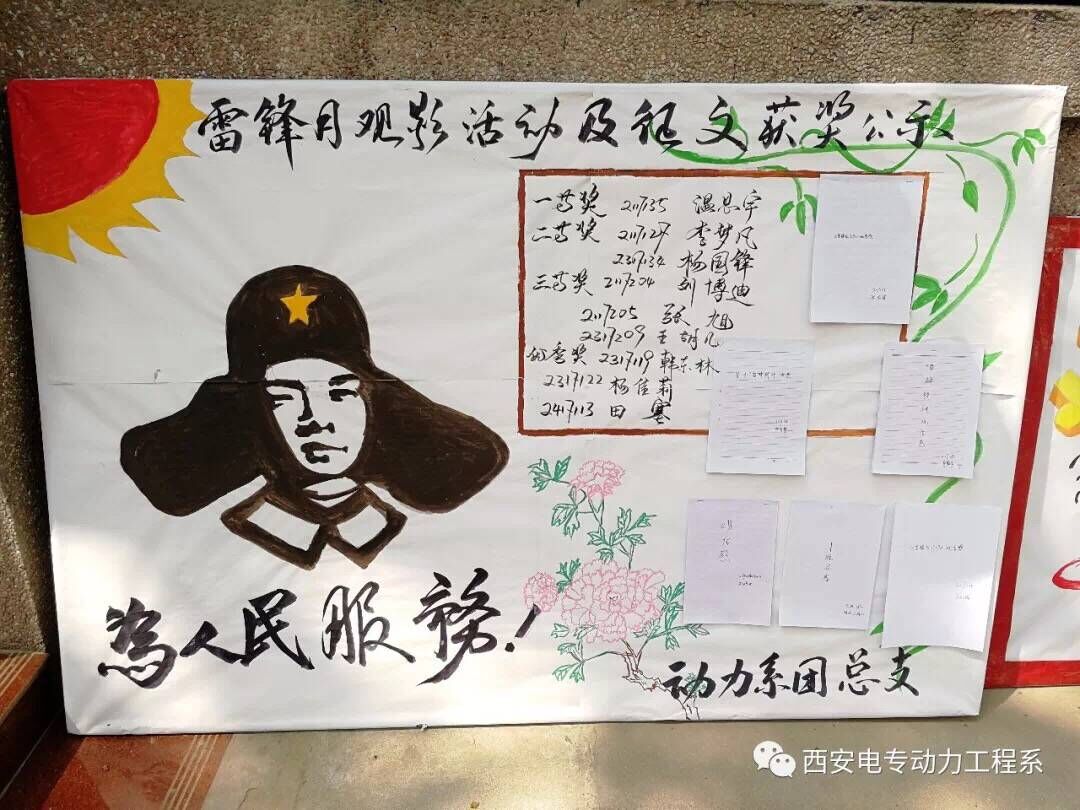 雷锋月观影活动及征文获奖公示
一等奖 2117135 温思宇
二等奖 2117127 李梦凡
2317134 杨国锋
三等奖 2117204 刘博迪
2117205 张旭
2317209 王胡凡
优秀奖 2317119 韩东林
2317122 杨佳莉
2417113 田骞
為人民服務!
动力系团总支
西安电专动力工程系